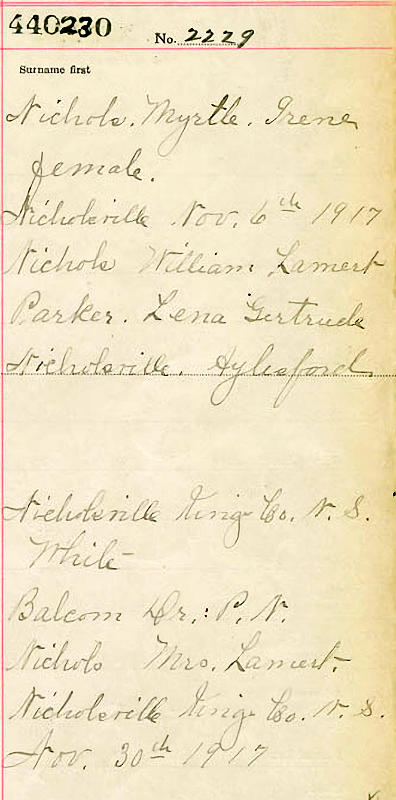 440230
No. 2229
Surname first
Nichols. Myrtle. Irene
female.
Nicholsville Nov. 6th 1917
Nichols William Lamert
Parker. Lena Gertrude
Nicholsville. Aylesford
Nicholsville Kings Co. N. S.
White
Balcom Dr. P. N.
Nichols Mrs. Lamert.
Nicholsville Kings Co. N. S.
Nov. 30th 1917